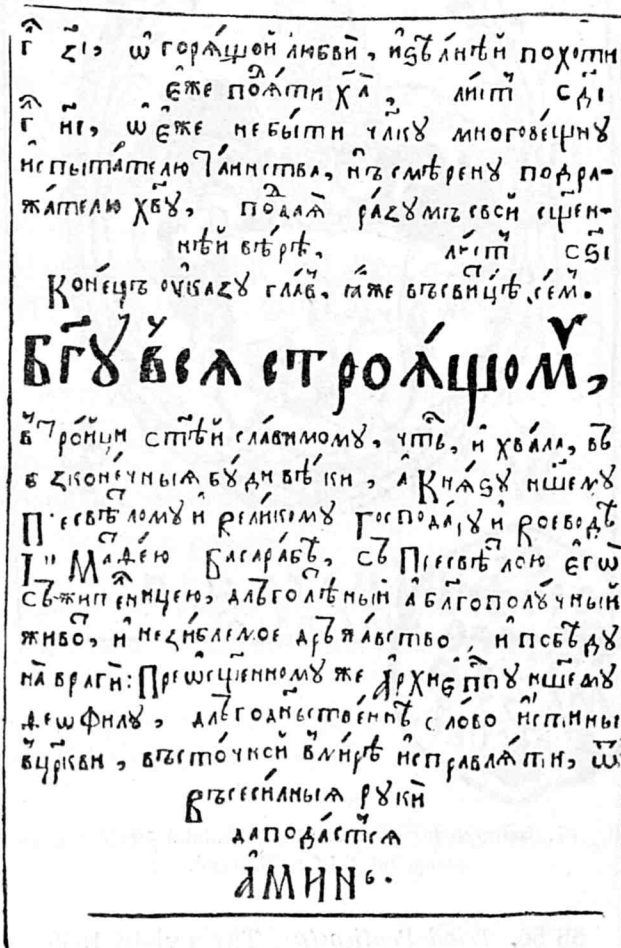 г҃ з҃і, ѡ҆ горѧ́щой любвѝ, и҆ ѕѣ́лнѣй похоти
є҆́же поѧ́ти хⷭ҇а̀, ли́стⸯ сд҃і
г҃ и҃і, ѡ҆ є҆́же не бы́ти чл҃кꙋ многовѣщнꙋ
и҆спыта́телю та́инства, нъ смѣ́ренꙋ подра-
жа́телю хв҃ꙋ, пода́ѧ̀ ра́зꙋмъ свой сщ҃ен-
нѣй вѣ́рѣ, ли́стⸯ сѕ҃і
Коне́цъ ᲂу҆ка́зꙋ гла́в, ꙗ҆́же въ сви́цѣ се́м.
Бг҃ꙋ всѧ строѧ́щомꙋ,
в҆ тро́йци ст҃ѣй сла́вимомꙋ, чть, и҆ хвала, въ
безконе́чныѧ бꙋ́ди вѣ́ки, а҆ Кнѧ́ѕꙋ нш҃емꙋ
Пресвѣтломꙋ и҆ великомꙋ Господа́рꙋ и҆ Воеводѣ
Іѡ Маѳе́ю Басара́бѣ, съ Пресвѣтлою є҆гѡ̀
съжителницею, длъголѣ́тный а҆ бл҃гополꙋ́чный
живо́т, и҆ незиблемое дръжа́вство, и҆ побѣ́дꙋ
на врагѝ: Прешсщ҃енномꙋ же А҆рхіепⷭ҇пꙋ нш҃емꙋ
Ѳеѡфилꙋ, длъгоднъстве́ннѣ сло́во и҆́стины
в҆ цр҃кви, въсто́чной в҆ ми́рѣ и҆справлѧ́ти, ѿ
Въсеси́лныѧ рꙋки̂
да пода́стсѧ
А҆МИНЬ.